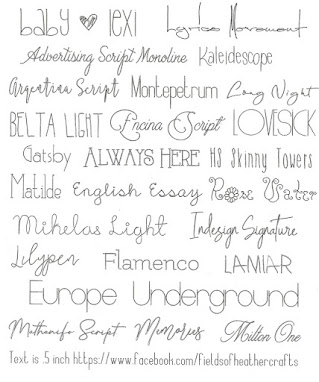 baby lexi Lyrics Movement
Advertising Script Monoline Kaleidescope
Argentina Script Montepetrum Long Night
BELTA LIGHT Encina Script LOVESICK
Gatsby ALWAYS HERE HS Skinny Towers
Matilde English Essay Rose Water
Mihelas Light Indesign Signature
Lilypen Flamenco LAMIAR
Europe Underground
Mathanifo Script Memories Milton One
Text is .5 inch https://www.facebook.com/fieldsofheathercrafts